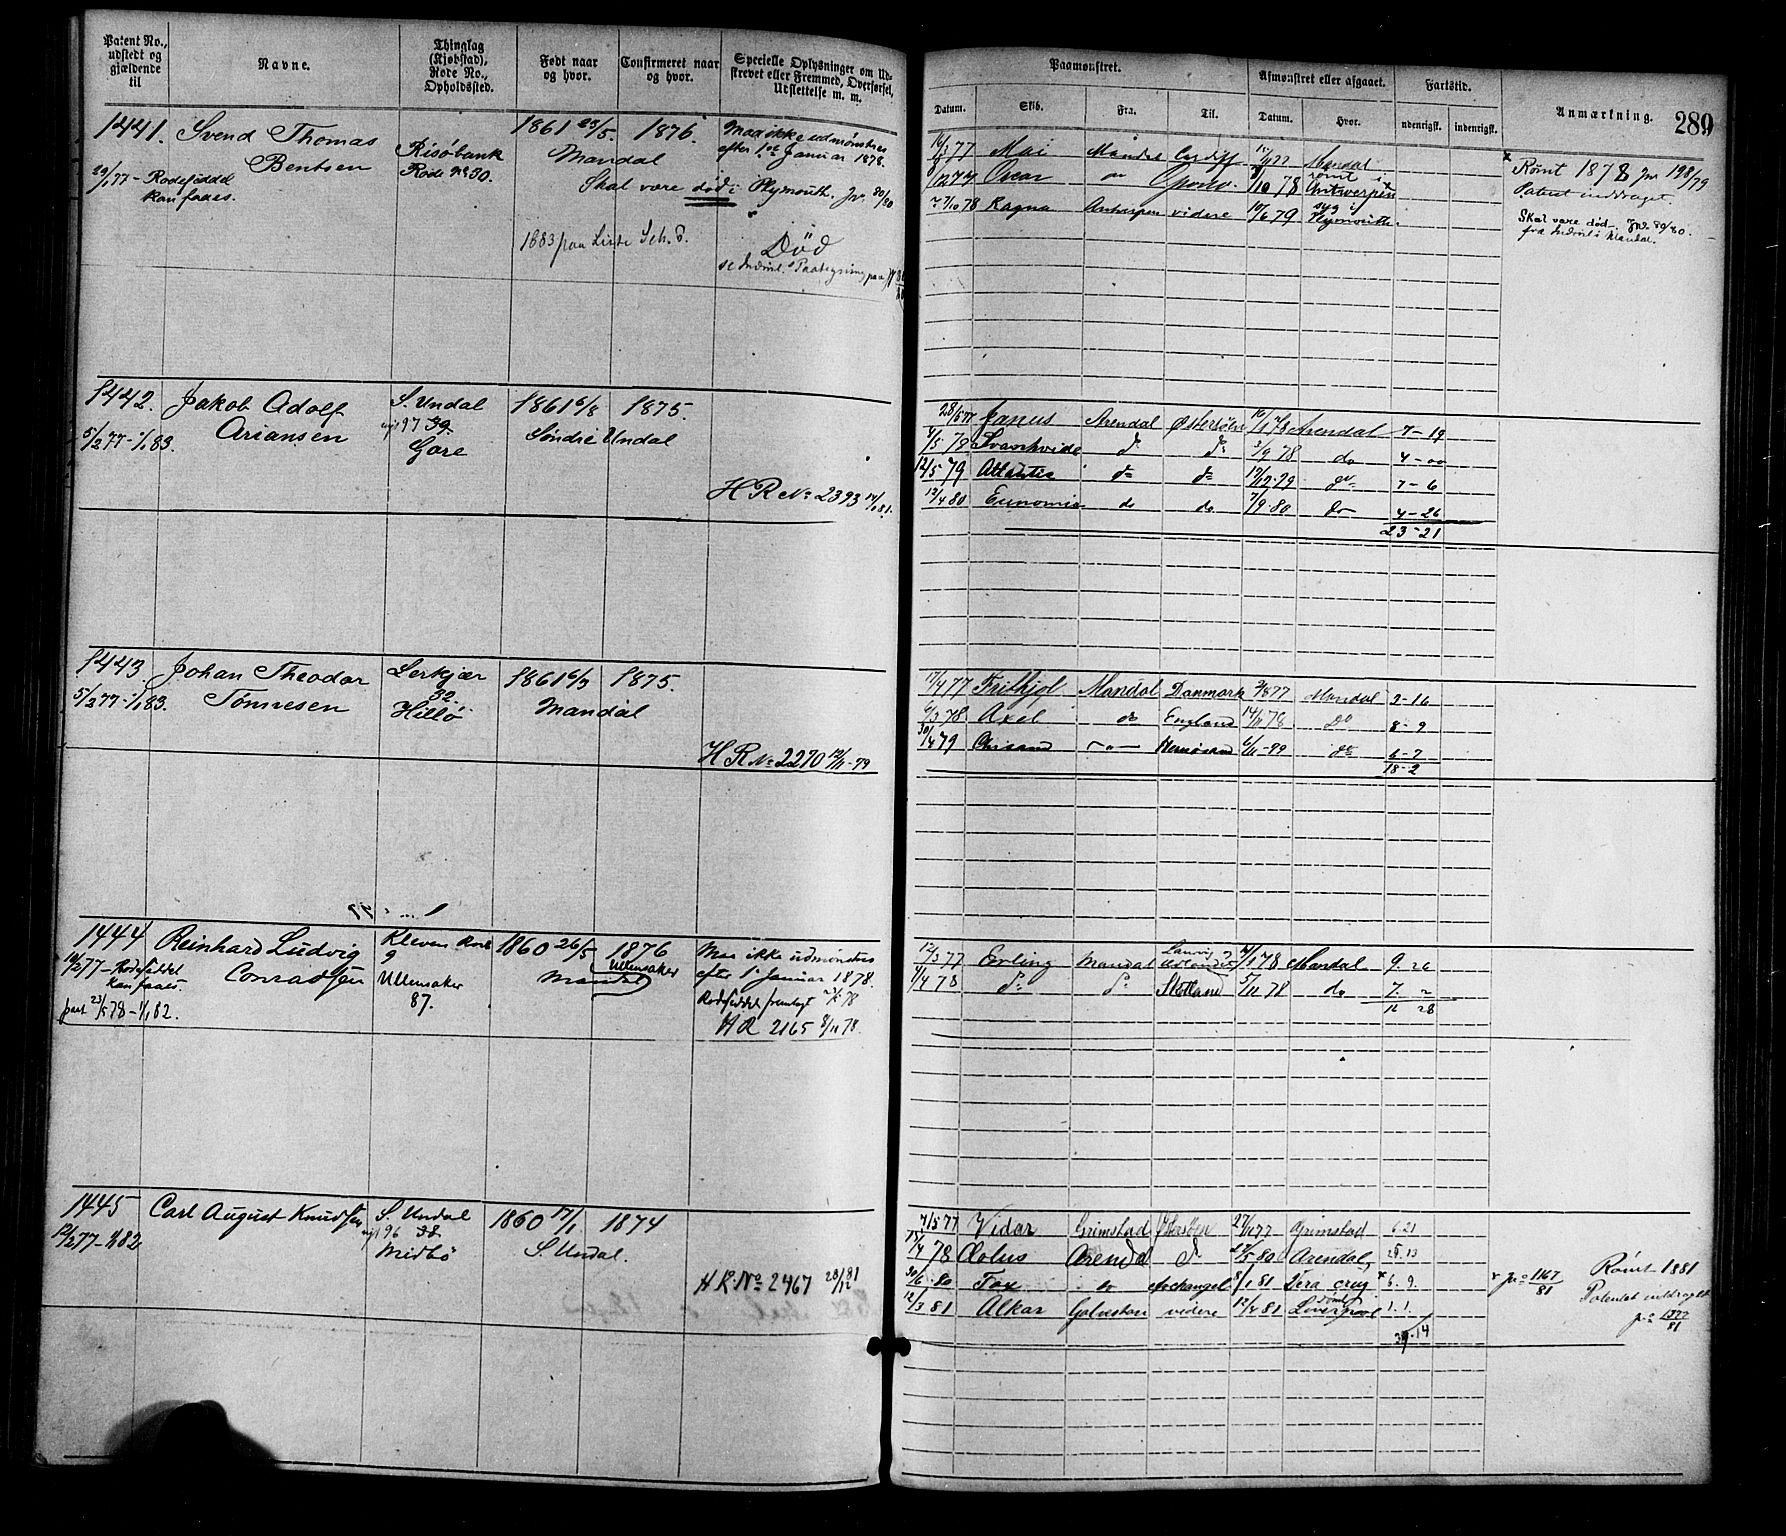 Patent No., udstedt og gjældende til
Navne.
Thinglag (Kjøbstad), Rode No., Opholdssted.
Født naar og hvor.
Confirmeret naar og hvor.
Specielle Oplysninger om Udstrevet eller Fremmed, Overførsel, Udslettelse m. m.
1441. Svend Thomas Bentsen
29/1 77 - Rodeseddel kan faaes.
Risøbank Rode No 30.
1861 23/5 Mandal
1876.
Maa ikke udmønstres efter 1st Januar 1878.
Skal være død i Plymouth. Jr. 80/80
1883 paa Liste Sch. d.
Død
1442. Jakob Adolf Ariansen
5/2 77 - 1/1 83.
S. Undal 97 39. Gare
1861 6/8 1875.
Søndre Undal
HR No 2393 14/1 81.
1443. Johan Theodor Tønnesen
5/2 77 - 1/1 83.
Lerkjær 32. Hillø
1861 6/7 1875.
Mandal
HR No 2270 12/11-79
1444 Reinhard Ludvig Conradsen
10/2 77 - Rodeseddel kan faaes.
pat 23/5 78 - 1/1 82.
Kleven Rode 9
Ullensaker 87.
1860 26/5 1876
Ullensaker
Mandal
Maa ikke udmønstres efter 1st Januar 1878.
Rodeseddel fremlagt
HR 2165 8/11 78.
1445 Carl August Knudsen
12/2 77 - 1/1 82
S. Undal 96 38 Midbø
1860 17/1 1874
S. Undal.
HR No 2467 28/12 81
Paamønstret.
Afmønstret eller afgaaet.
Fartstid.
Anmærkning.
289
Datum.
Skib.
Fra.
Til.
Datum.
Hvor.
udenrigsk.
indenrigsk.
16/3 77 Mai Mandal Cardiff Mandal
8/12 77 Oscar do 8/10 78 rømt i Antwerpen
27/10 78 Ragna Antwerpen videre 10/6 79 syg i Plymouth
Rømt 1878 Jnr 198/79
Patent inddraget.
Skal være død. Jnr. 80/80.
fra Indrul. i Mandal.
28/5 77 Janus Arendal Østersøen Arendal 7-19
4/5 78 Svanhvide do do 3/9 78 do 4-00
12/5 79 Atlantic do do 12/12-79 do 7-6
12/4 80 Eunomia do do 7/9-80 do 4-26
23-21
17/4 77 Frithjof Mandal Danmark Mandal 3-16
6/3 78 Axel do England 14/11 78 Do 8-9
30/4 79 Chisand do Hernøsand 6/11-79 do 6-7
18-2
12/3 77 Erling Mandal Mandal 9. 26
1/4 78 do do Skotland 5/11 78 do 7. 2
16 28
7/5 77 Vidar Grimstad Østersøen 27/11 77 Grimstad 6.21
15/4 78 Æolus Arendal do Arendal, 25.13
30/6-80 Fox do Archangel 8/1 81 Vera Crux 6. 9.
12/3 81 Alkar Galveston videre 12/4 81 rømt Liverpool 1.1.
39-14
1167/81
Rømt 1881
Patentet inddraget
1377/81